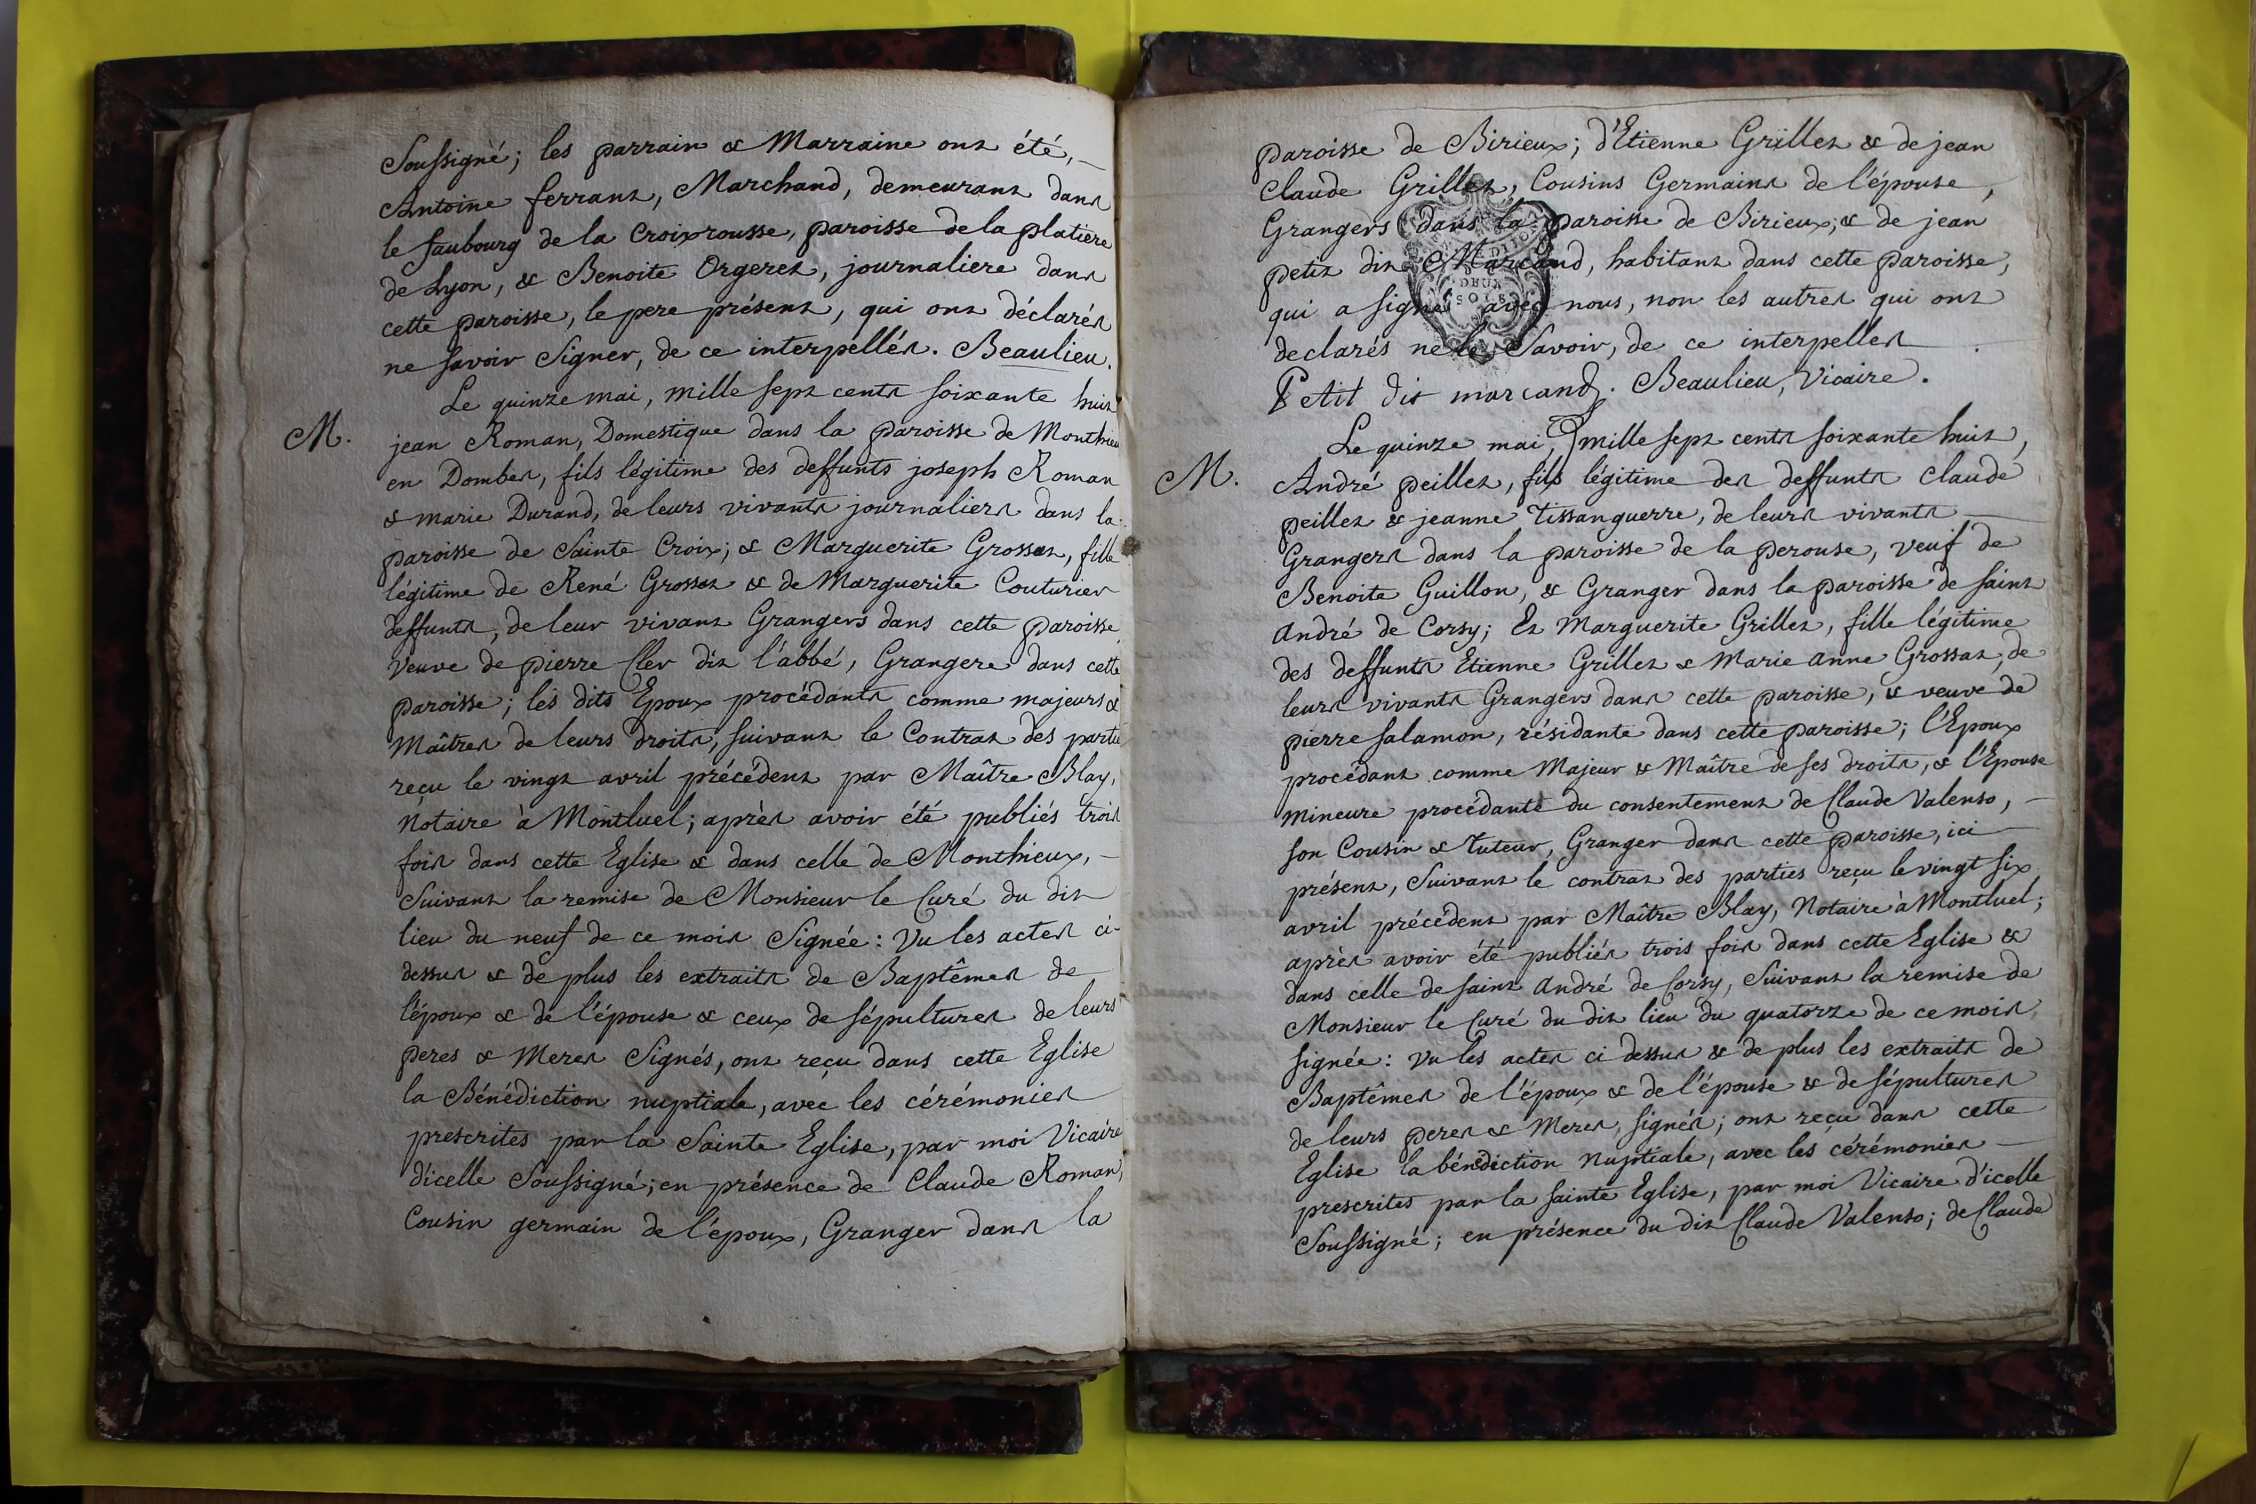 Soussigné; les parrain & Marraine ont été,
Antoine ferrant, Marchand, demeurant dans
le faubourg de la Croixrousse, paroisse de la platiere
de Lyon, & Benoite Orgeret, journaliere dans
cette paroisse, le pere présent, qui ont déclarés
ne savoir Signer, de ce interpellés. Beaulieu.
Le quinze mai, mille sept cents soixante huit
M.
jean Roman, Domestique dans la paroisse de Monthieu
en Dombes, fils légitime des deffunts joseph Roman
& marie Durand, de leurs vivants journaliers dans la
paroisse de Sainte Croix; & Marguerite Grossat, fille
légitime de René Grossat & de Marguerite Couturier
deffunts, de leur vivant Grangers dans cette paroisse
veuve de pierre Cler dit l'abbé, Grangere dans cette
paroisse; les dits Epoux procédants comme majeurs &
Maîtres de leurs droits, suivant le Contrat des partie
reçu le vingt avril précédent par Maître Blay,
Notaire à Montluel; après avoir été publiés trois
fois dans cette Eglise & dans celle de Monthieux,
Suivant la remise de Monsieur le Curé du dit
lieu du neuf de ce mois Signée: Vu les actes ci-
dessus & de plus les extraits de Baptêmes de
l'époux & de l'épouse & ceux de sépultures de leurs
peres & Meres Signés, ont reçu dans cette Eglise
la Bénédiction nuptiale, avec les cérémonies
prescrites par la Sainte Eglise, par moi Vicaire
d'icelle Soussigné; en présence de Claude Roman,
Cousin germain de l'époux, Granger dans la
paroisse de Birieux; d'Etienne Grillet & de jean
Claude Grillet, Cousins Germains de l'épouse,
Grangers dans la paroisse de Birieux; & de jean
petit dit Marcand, habitant dans cette paroisse,
qui a signé avec nous, non les autres qui ont
declarés ne le Savoir, de ce interpellés
DEUX
SOLS
Petit dit marcand. Beaulieu, Vicaire.
Le quinze mai, mille sept cents soixante huit,
M.
André peillet, fils légitime des deffunts Claude
peillet & jeanne Tissanguerre, de leurs vivants
Grangers dans la paroisse de la perouse, veuf de
Benoite Guillon, & Granger dans la paroisse de saint
André de Corsy; Et Marguerite Grillet, fille légitime
des deffunts Etienne Grillet & Marie anne Grossat, de
leurs vivants Grangers dans cette paroisse, & veuve de
pierre salamon, résidante dans cette paroisse; l'Epoux
procédant comme Majeur & Maître de ses droits, & l'Epouse
mineure procédante du consentement de Claude Valenso,
son Cousin & tuteur, Granger dans cette paroisse, ici
présent, Suivant le contrat des parties reçu le vingt six
avril précédent par Maître Blay, Notaire à Montluel;
après avoir été publiés trois fois dans cette Eglise &
dans celle de saint André de Corsy, Suivant la remise de
Monsieur le Curé du dit lieu du quatorze de ce mois
signée: Vu les actes ci dessus & de plus les extraits de
Baptêmes de l'époux & de l'épouse & de sépultures
de leurs peres & Meres, signés; ont reçu dans cette
Eglise la bénédiction Nuptiale, avec les cérémonies
prescrites par la sainte Eglise, par moi Vicaire d'icelle
Soussigné; en présence du dit Claude Valenso; de Claude